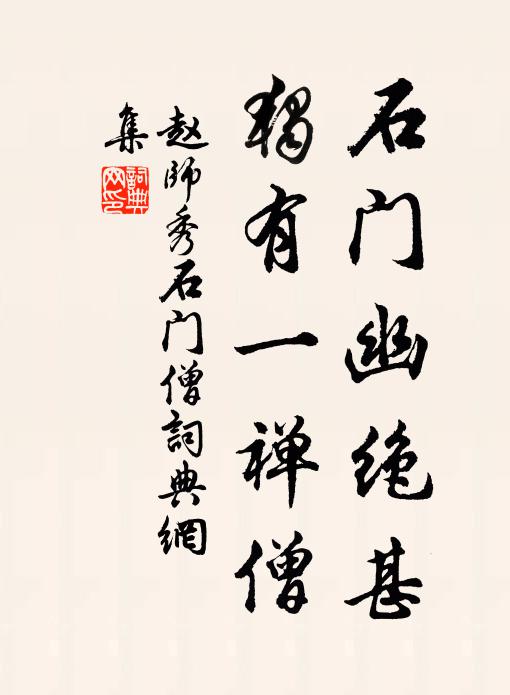 石门幽绝甚
独有一禅僧
赵师秀石门僧詞典網
集
詞典
网印